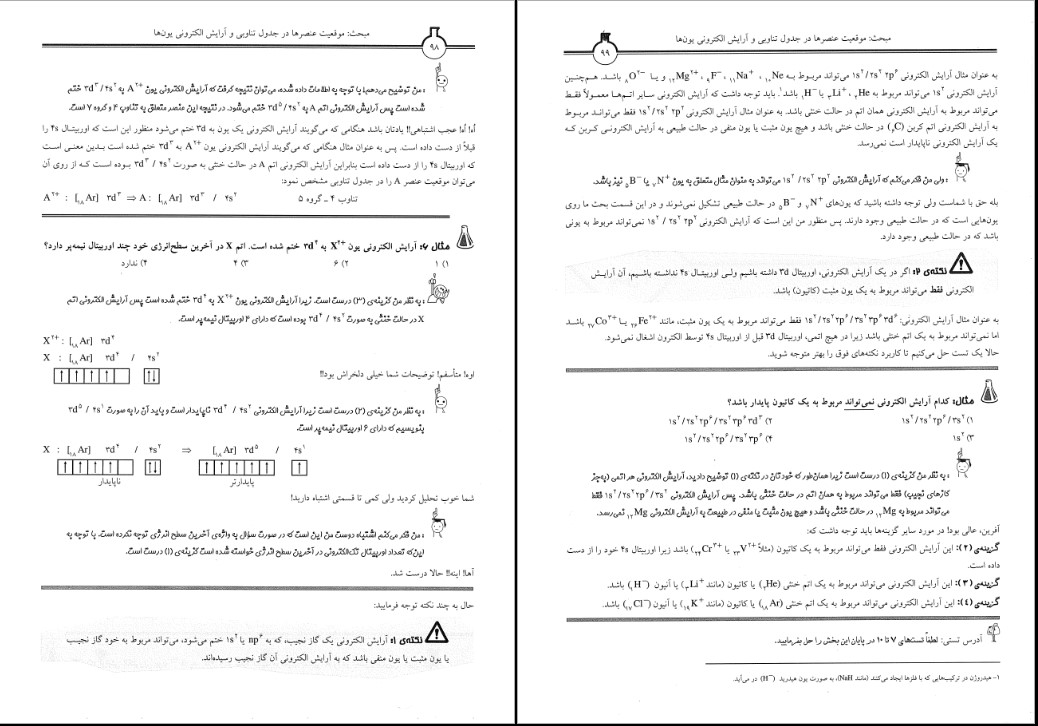 مبحث: موقعیت عنصرها در جدول تناوبی و آرایش الکترونی یون‌ها
۹۸
: من توضیح می‌دهم! با توجه به اطلاعات داده شده، می‌توان نتیجه گرفت که آرایش الکترونی یون A²⁺ به ۳d³ / ۴s² ختم
شده است پس آرایش الکترونی اتم A به ۳d⁵ / ۴s² ختم می‌شود. در نتیجه این عنصر متعلق به تناوب ۴ و گروه ۷ است.
اُه! اُه! عجب اشتباهی!! یادتان باشد هنگامی که می‌گویند آرایش الکترونی یک یون به ۳d ختم می‌شود منظور این است که اوربیتال ۴s را
قبلاً از دست داده است. پس به عنوان مثال هنگامی که می‌گویند آرایش الکترونی یون A²⁺ به ۳d³ ختم شده است بدین معنی است
که اوربیتال ۴s را از دست داده است بنابراین آرایش الکترونی اتم A در حالت خنثی به صورت ۳d³ / ۴s² بوده است که از روی آن
می‌توان موقعیت عنصر A را در جدول تناوبی مشخص نمود:
A²⁺ : [₁₈Ar] ۳d³ ⇒ A : [₁₈Ar] ۳d³ / ۴s² تناوب ۴ ـ گروه ۵
مثال ۶: آرایش الکترونی یون X²⁺ به ۳d⁴ ختم شده است. اتم X در آخرین سطح‌انرژی خود چند اوربیتال نیمه‌پر دارد؟
۱) ۱ ۲) ۶ ۳) ۴ ۴) ندارد
: به نظر من گزینه‌ی (۳) درست است. زیرا آرایش الکترونی یون X²⁺ به ۳d⁴ ختم شده است پس آرایش الکترونی اتم
X در حالت خنثی به صورت ۳d⁴ / ۴s² بوده است که دارای ۴ اوربیتال نیمه‌پر است.
X²⁺ : [₁₈Ar] ۳d⁴
X : [₁₈Ar] ۳d⁴ / ۴s²
اوه! متأسفم! توضیحات شما خیلی دلخراش بود!!
: به نظر من گزینه‌ی (۲) درست است زیرا آرایش الکترونی ۳d⁴ / ۴s² ناپایدار است و باید آن را به صورت ۳d⁵ / ۴s¹
بنویسیم که دارای ۶ اوربیتال نیمه‌پر است.
X : [₁₈Ar] ۳d⁴ / ۴s² ⇒ [₁₈Ar] ۳d⁵ / ۴s¹
ناپایدار پایدارتر
شما خوب تحلیل کردید ولی کمی تا قسمتی اشتباه دارید!
: من فکر می‌کنم اشتباه دوست من این است که در صورت سؤال به واژه‌ی آخرین سطح انرژی توجه نکرده است. با توجه به
این‌که تعداد اوربیتال تک‌الکترونی در آخرین سطح انرژی خواسته شده است گزینه‌ی (۱) درست است.
آها! اینه!! حالا درست شد.
حال به چند نکته توجه فرمایید:
نکته‌ی ۱: آرایش الکترونی یک گاز نجیب، که به np⁶ یا ۱s² ختم می‌شود، می‌تواند مربوط به خود گاز نجیب
یا یون مثبت یا یون منفی باشد که به آرایش الکترونی آن گاز نجیب رسیده‌اند.
مبحث: موقعیت عنصرها در جدول تناوبی و آرایش الکترونی یون‌ها
۹۹
به عنوان مثال آرایش الکترونی ۱s²/۲s²۲p⁶ می‌تواند مربوط بـه ₁₀Ne ، ₁₁Na⁺ ، ₉F⁻ ، ₁₂Mg²⁺ و یـا ₈O²⁻ باشـد. هم‌چنین
آرایش الکترونی ۱s² می‌تواند مربوط به ₂He ، ₃Li⁺ یا ₁H⁻ باشد¹. باید توجه داشت که آرایش الکترونی سایر اتم‌هـا معمـولاً فقـط
می‌تواند مربوط به آرایش الکترونی همان اتم در حالت خنثی باشد. به عنوان مثال آرایش الکترونی ۱s²/۲s²۲p² فقط می‌توانـد مربـوط
به آرایش الکترونی اتم کربن (₆C) در حالت خنثی باشد و هیچ یون مثبت یا منفی در حالت طبیعی به آرایش الکترونـی کـربن کـه
یک آرایش الکترونی ناپایدار است نمی‌رسد.
: ولی من فکر می‌کنم که آرایش الکترونی ۱s²/۲s²۲p² می‌تواند به عنوان مثال متعلق به یون ₇N⁺ یا ₅B⁻ نیز باشد.
بله حق با شماست ولی توجه داشته باشید که یون‌های ₇N⁺ و ₅B⁻ در حالت طبیعی تشکیل نمی‌شوند و در این قسمت بحث ما روی
یون‌هایی است که در حالت طبیعی وجود دارند. پس منظور من این است که آرایش الکترونی ۱s²/۲s²۲p² نمی‌تواند مربوط به یونی
باشد که در حالت طبیعی وجود دارد.
نکته‌ی ۲: اگر در یک آرایش الکترونی، اوربیتال ۳d داشته باشیم ولـی اوربیتـال ۴s نداشـته باشـیم، آن آرایـش
الکترونی فقط می‌تواند مربوط به یک یون مثبت (کاتیون) باشد.
به عنوان مثال آرایش الکترونی: ۱s²/۲s²۲p⁶/۳s²۳p⁶۳d⁶ فقط می‌تواند مربوط به یک یون مثبت، مانند ₂₆Fe²⁺ یـا ₂₇Co³⁺ باشـد
اما نمی‌تواند مربوط به یک اتم خنثی باشد زیرا در هیچ اتمی، اوربیتال ۳d قبل از اوربیتال ۴s توسط الکترون اشغال نمی‌شود.
حالا یک تست حل می‌کنیم تا کاربرد نکته‌های فوق را بهتر متوجه شوید.
مثال: کدام آرایش الکترونی نمی‌تواند مربوط به یک کاتیون پایدار باشد؟
۱) ۱s²/۲s²۲p⁶/۳s² ۲) ۱s²/۲s²۲p⁶/۳s²۳p⁶۳d³
۳) ۱s² ۴) ۱s²/۲s²۲p⁶/۳s²۳p⁶
: به نظر من گزینه‌ی (۱) درست است زیرا همان‌طور که خودتان در نکته‌ی (۱) توضیح دادید، آرایش الکترونی هر اتمی (به‌جز
گازهای نجیب) فقط می‌تواند مربوط به همان اتم در حالت خنثی باشد. پس آرایش الکترونی ۱s²/۲s²۲p⁶/۳s² فقط
می‌تواند مربوط به ₁₂Mg در حالت خنثی باشد و هیچ یون مثبت یا منفی در طبیعت به آرایش الکترونی ₁₂Mg نمی‌رسد.
آفرین، عالی بود! در مورد سایر گزینه‌ها باید توجه داشت که:
گزینه‌ی (۲): این آرایش الکترونی فقط می‌تواند مربوط به یک کاتیون (مثلاً ₂₃V²⁺ یا ₂₄Cr³⁺) باشد زیرا اوربیتال ۴s خود را از دست
داده است.
گزینه‌ی (۳): این آرایش الکترونی می‌تواند مربوط به یک اتم خنثی (₂He) یا کاتیون (مانند ₃Li⁺) یا آنیون (₁H⁻) باشد.
گزینه‌ی (۴): این آرایش الکترونی می‌تواند مربوط به یک اتم خنثی (₁₈Ar) یا کاتیون (مانند ₁₉K⁺) یا آنیون (₁₇Cl⁻) باشد.
آدرس تستی: لطفاً تست‌های ۷ تا ۱۰ در پایان این بخش را حل بفرمایید.
۱- هیدروژن در ترکیب‌هایی که با فلزها ایجاد می‌کنند (مانند NaH)، به صورت یون هیدرید (H⁻) در می‌آید.